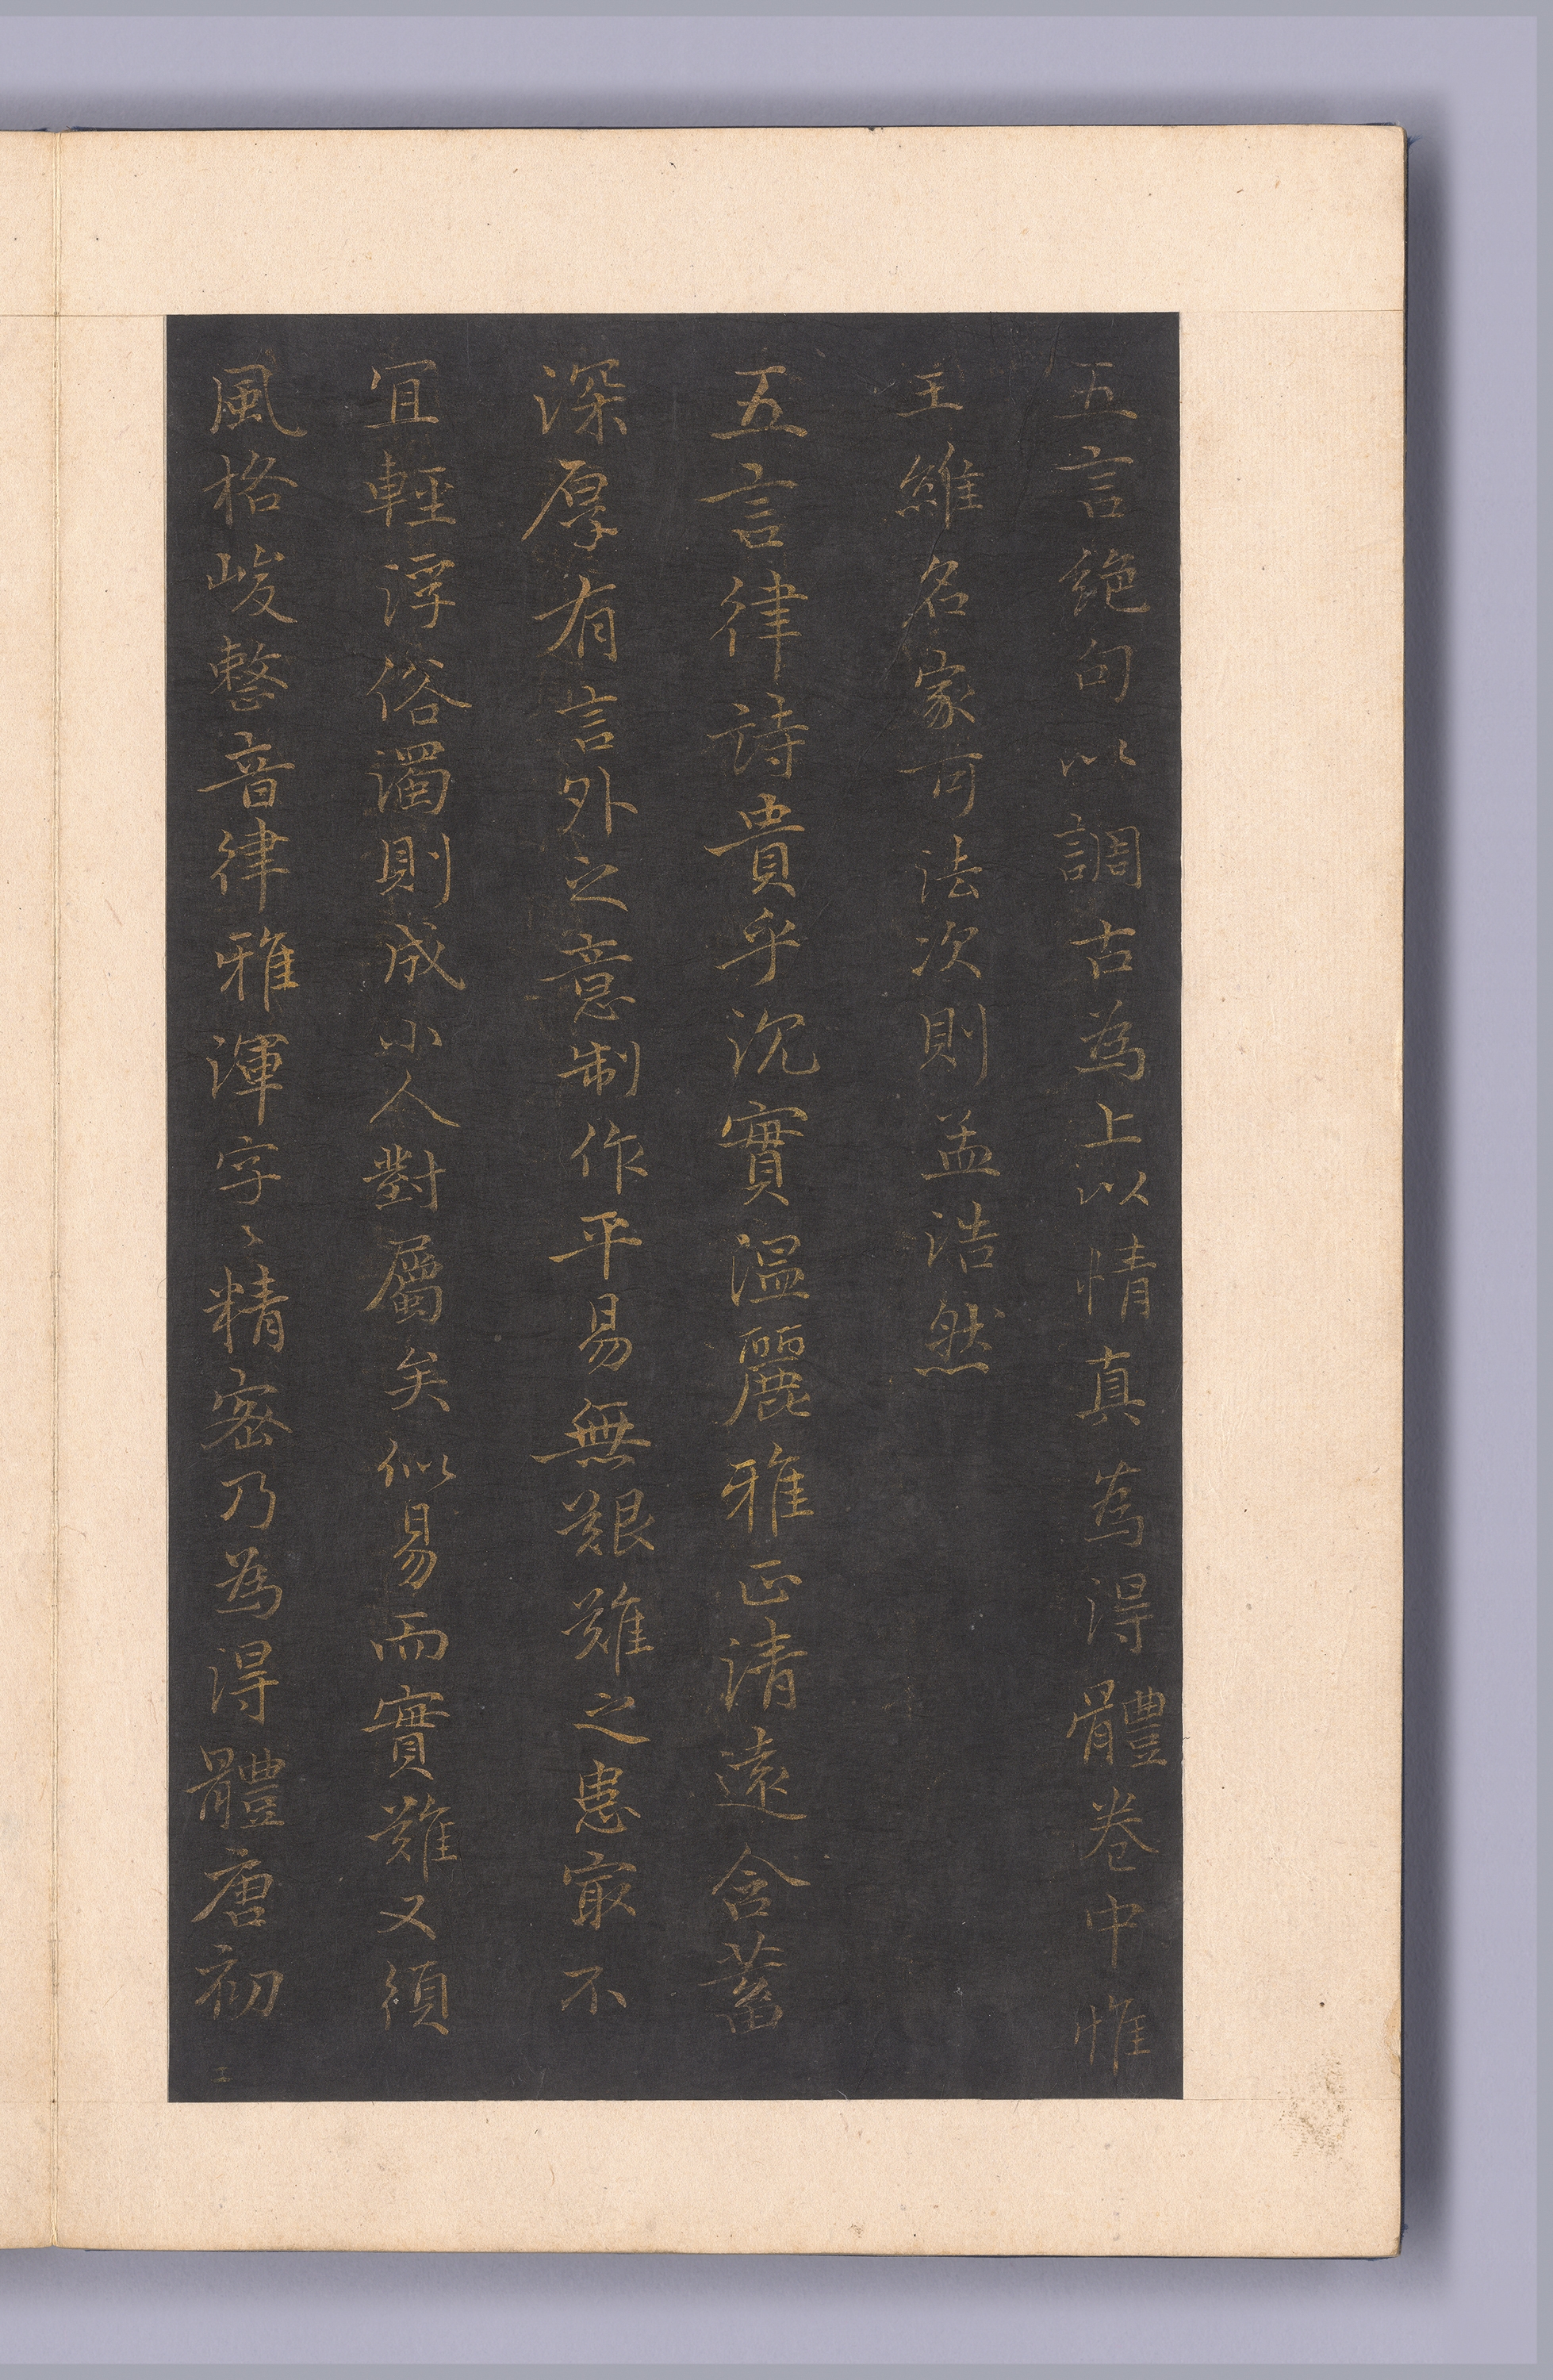 五言絕句以調古為上以情真為得體卷中惟
王維名家可法次則孟浩然
五言律詩貴乎沉實溫麗雅正清遠含蓄
深厚有言外之意制作平易無艱難之患冣不
宜輕浮俗濁則成小人對屬矣似易而實難又須
風格峻整音律雅渾字〻精密乃為得體唐初
工